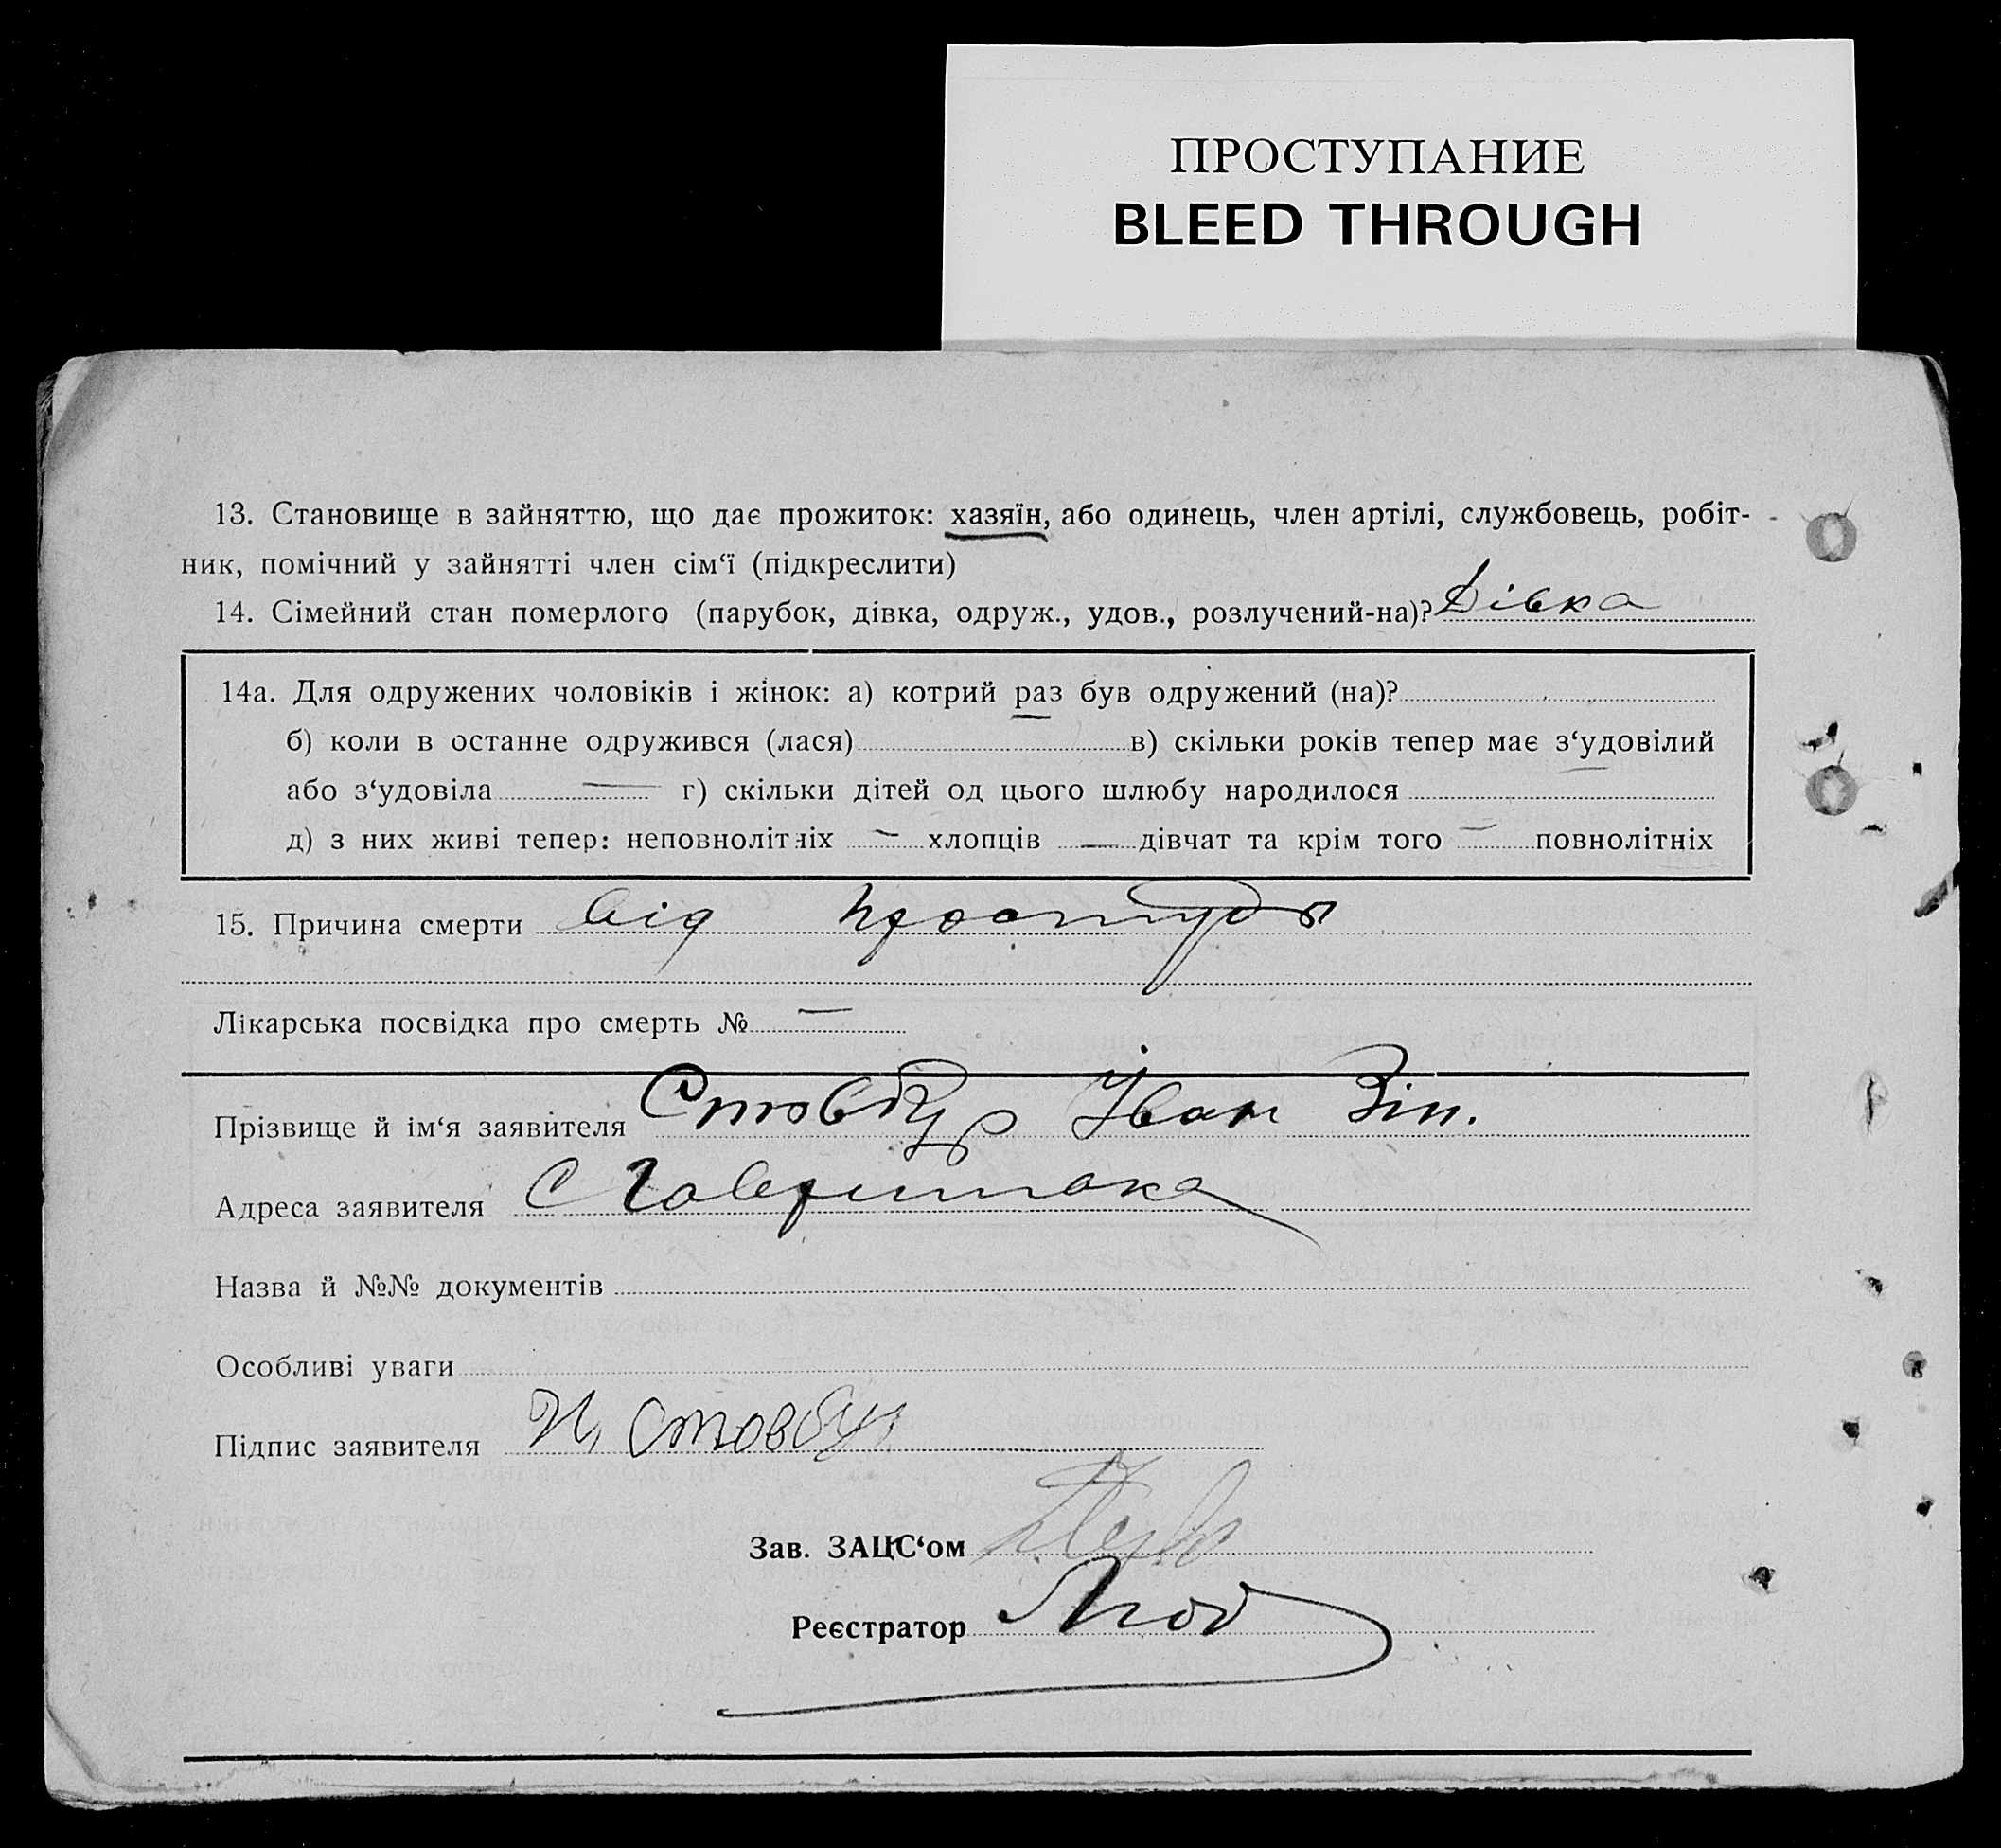 ПРОСТУПАНИЕ
BLEED THROUGH
13. Становище в зайняттю, що дає прожиток: хазяїн, або одинець, член артілі, службовець, робіт-
ник, помічний у зайнятті член сім‘ї (підкреслити)
14. Сімейний стан померлого (парубок, дівка, одруж., удов., розлучений-на)? Дівка
14а. Для одружених чоловіків і жінок: а) котрий раз був одружений (на)?
б) коли в останне одружився (лася) в) скільки років тепер має з‘удовілий
або з‘удовіла — г) скільки дітей од цього шлюбу народилося
д) з них живі тепер: неповнолітніх — хлопців — дівчат та крім того — повнолітніх
15. Причина смерти від простуди
Лікарська посвідка про смерть № —
Прізвище й ім‘я заявителя Стовбур Іван Зін.
Адреса заявителя С Гавришовка
Назва й №№ документів
Особливі уваги
Підпис заявителя И, Стовбур
Зав. ЗАЦС‘ом
Реєстратор